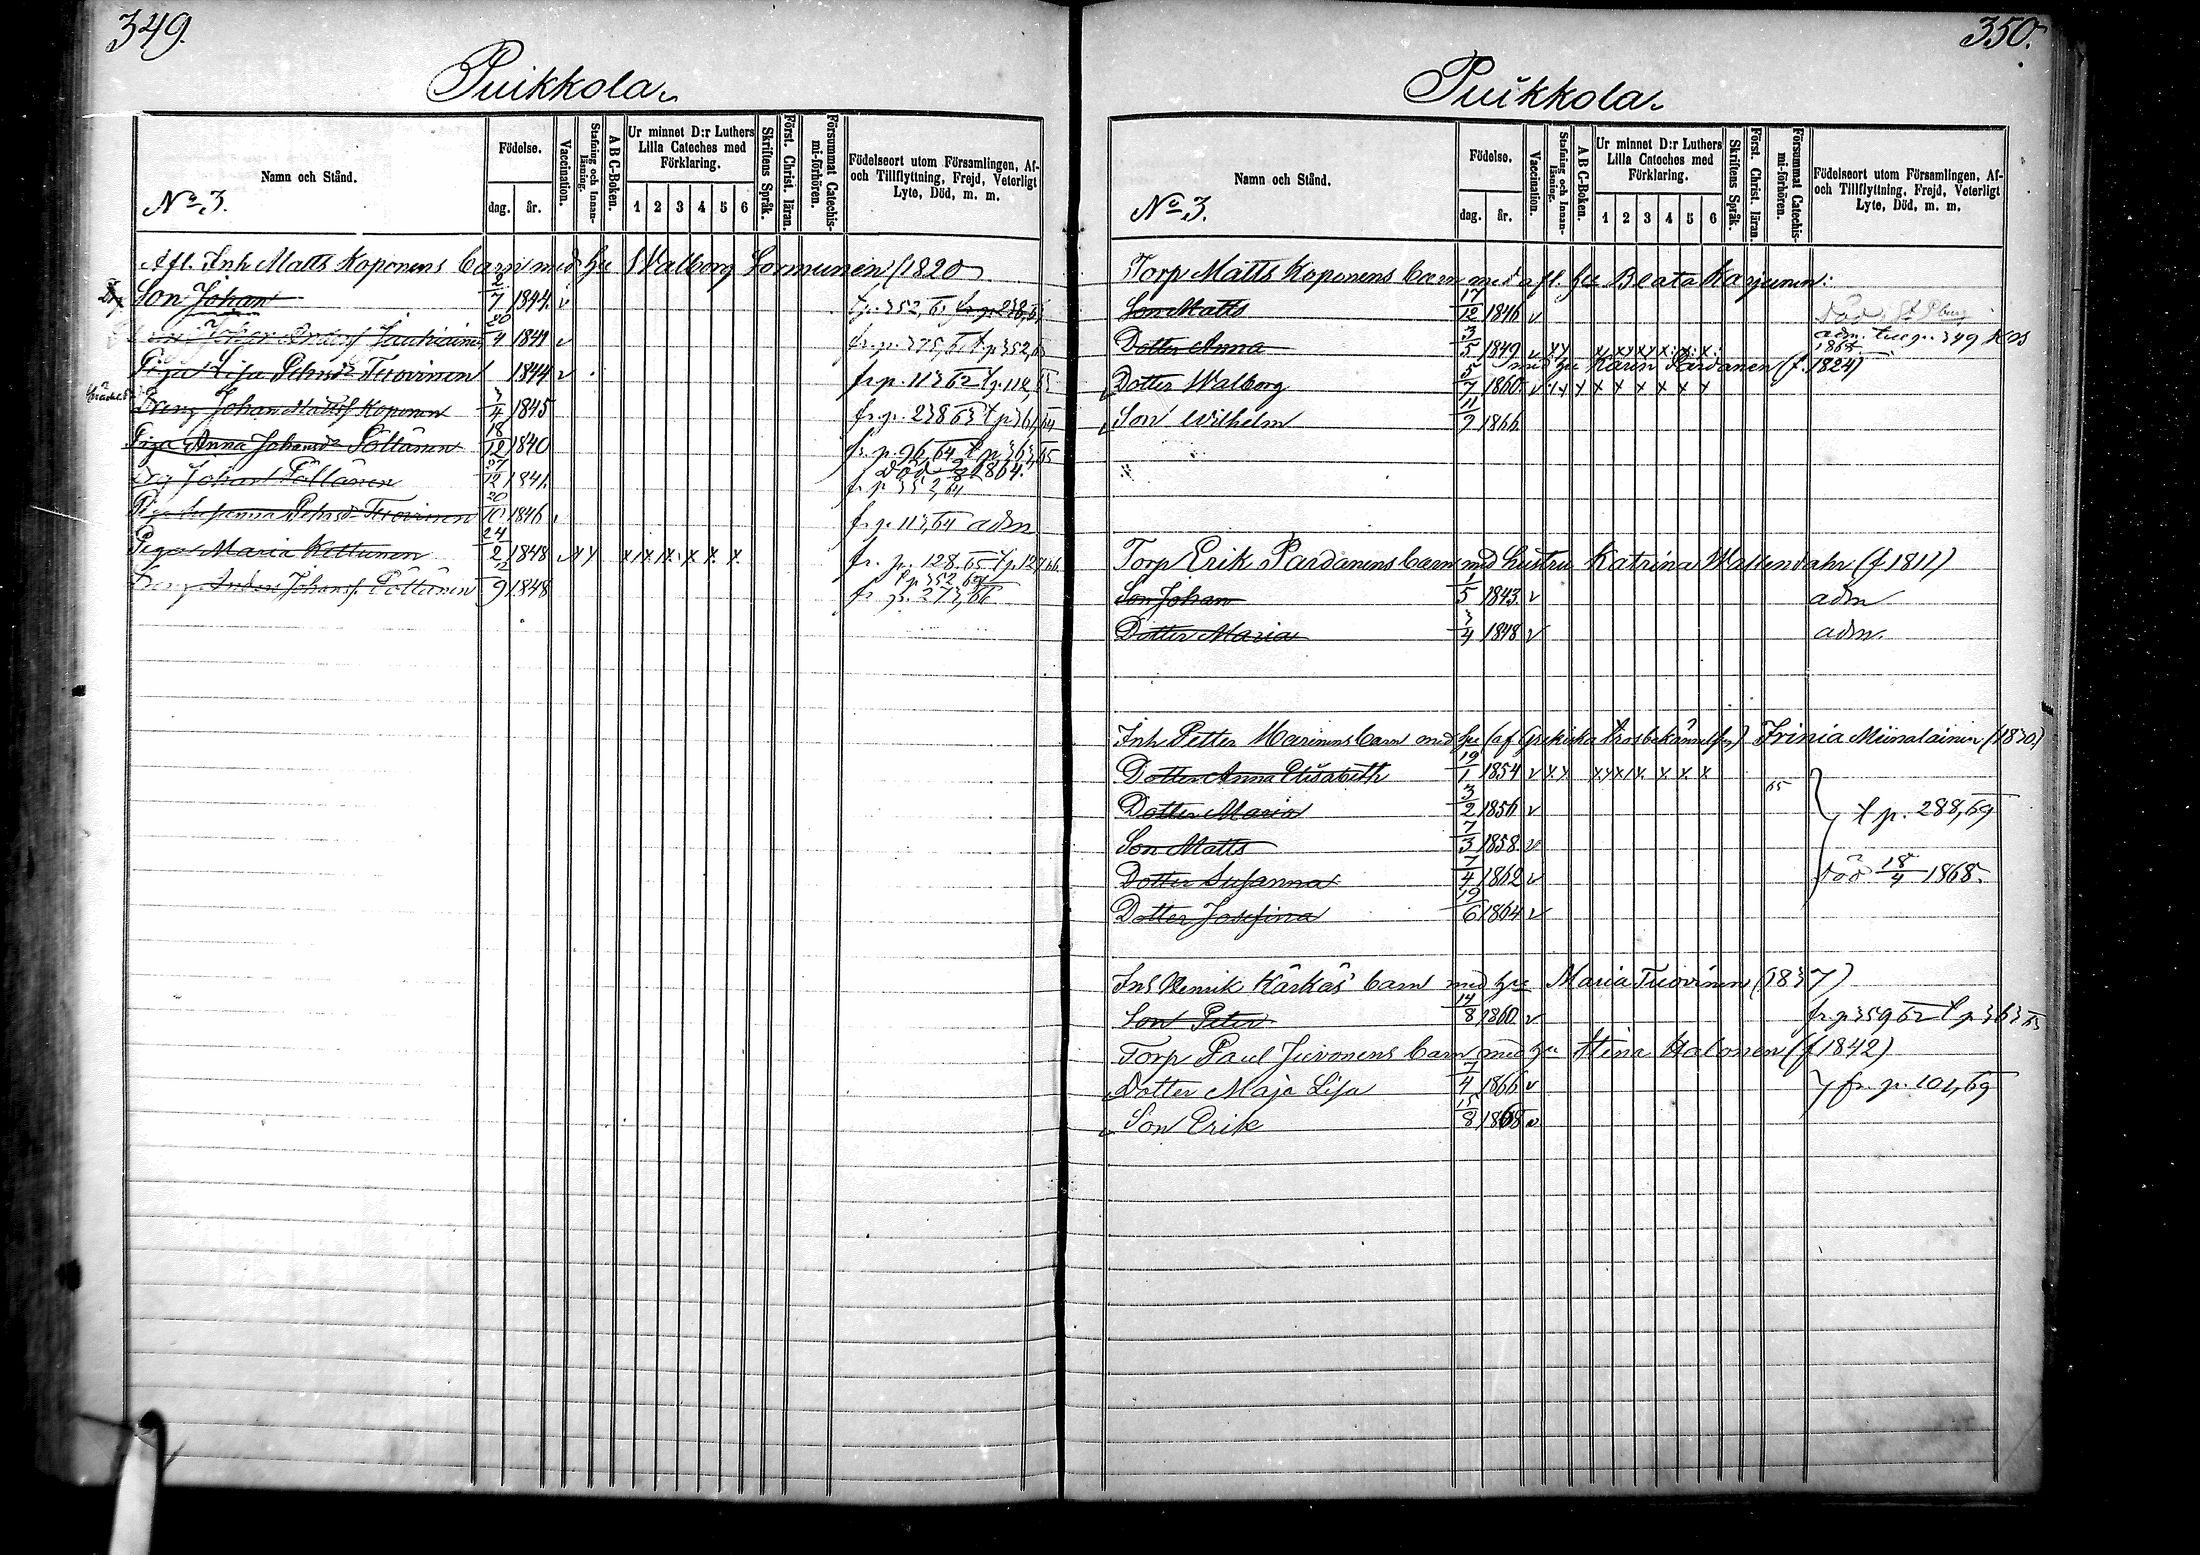 349.
Puikkola.
Namn och Stånd.
No 3.
Födelse.
dag. år.
Vaccination.
Stafning och Innan-läsning.
A B C-Boken.
Ur minnet D:r Luthers Lilla Cateches med Förklaring.
1 2 3 4 5 6
Skriftens Språk.
Först. Christ. läran.
Försummat Catechis-mi-förhören.
Födelseort utom Församlingen, Af- och Tillflyttning, Frejd, Veterligt Lyte, Död, m. m.
Afl. Inh Matts Koponens Barn med hu Walborg Sormunen (1820
Son Johan 2/7 1844. v
Johan Andersf 20/4 1841 v
Piga Lisa Petersdr Tuovinen 1844 v fr p. 113,62
Dreng Johan Mattsf Koponen 3/4 1845 fr. p. 238,63
Piga Anna Johansdr Pöllänen 18/12 1840 fr. p. 96,64
död 1864.
Johan Pöllänen 12 1841. fr p 352,64
Piga Susanna Petersdr Tuovinen 20/10 1846 fr p. 113,64 adm
Piga Maria Kettunen 24/2 1848 fr. p. 128.65
Dreng Anders Johansf. Pöllänen 9 1848 fr p. 273,66
350.
Puikkola.
Namn och Stånd.
No 3.
Födelse.
dag. år.
Vaccination.
Stafning och Innan-läsning.
A B C-Boken.
Ur minnet D:r Luthers Lilla Cateches med Förklaring.
1 2 3 4 5 6
Skriftens Språk.
Först. Christ. läran.
Försummat Catechis-mi-förhören.
Födelseort utom Församlingen, Af- och Tillflyttning, Frejd, Veterligt Lyte, Död, m. m.
Torp Matts Koponens Barn med afl. hu Beata Karjunen:
Son Matts 17/12 1846 v
Dotter Anna 3/5 1849 v x x x x x x x x adm. 349
1865
med hu Karin Pardanen (f. 1824)
Dotter Walborg 5/7 1860 v x x x x x x x x x
Son Wilhelm 11/9 1866
Torp Erik Pardanens Barn med hustru Katrina Wallendahr (f 1811)
Son Johan 1/5 1843. v adm
Dotter Maria 3/4 1848 v adm.
Inh Petter Harinens Barn med hu (af Grekiska trosbekännelsen) Irinia Miinalainen (1830)
Dotter Anna Elisabeth 19/1 1854 v x x x x x x x x 65
Dotter Maria 3/2 1856 v t p. 288,69
Son Matts 7/3 1858. v
Dotter Susanna 7/4 1862 v död 18/4 1868.
Dotter Josefina 19/6 1864 v
Inh Henrik Kärkäs' Barn med hu Maria Tuovinen (1837)
Son Peter 14/8 1860 v fr p 359 62 t p 363 63
Torp Paul Juvonens Barn med hu Stina Halonen (f 1842)
Dotter Maja Lisa 7/4 1866 v } fr. p. 101,69
Son Erik 15/8 1868 v